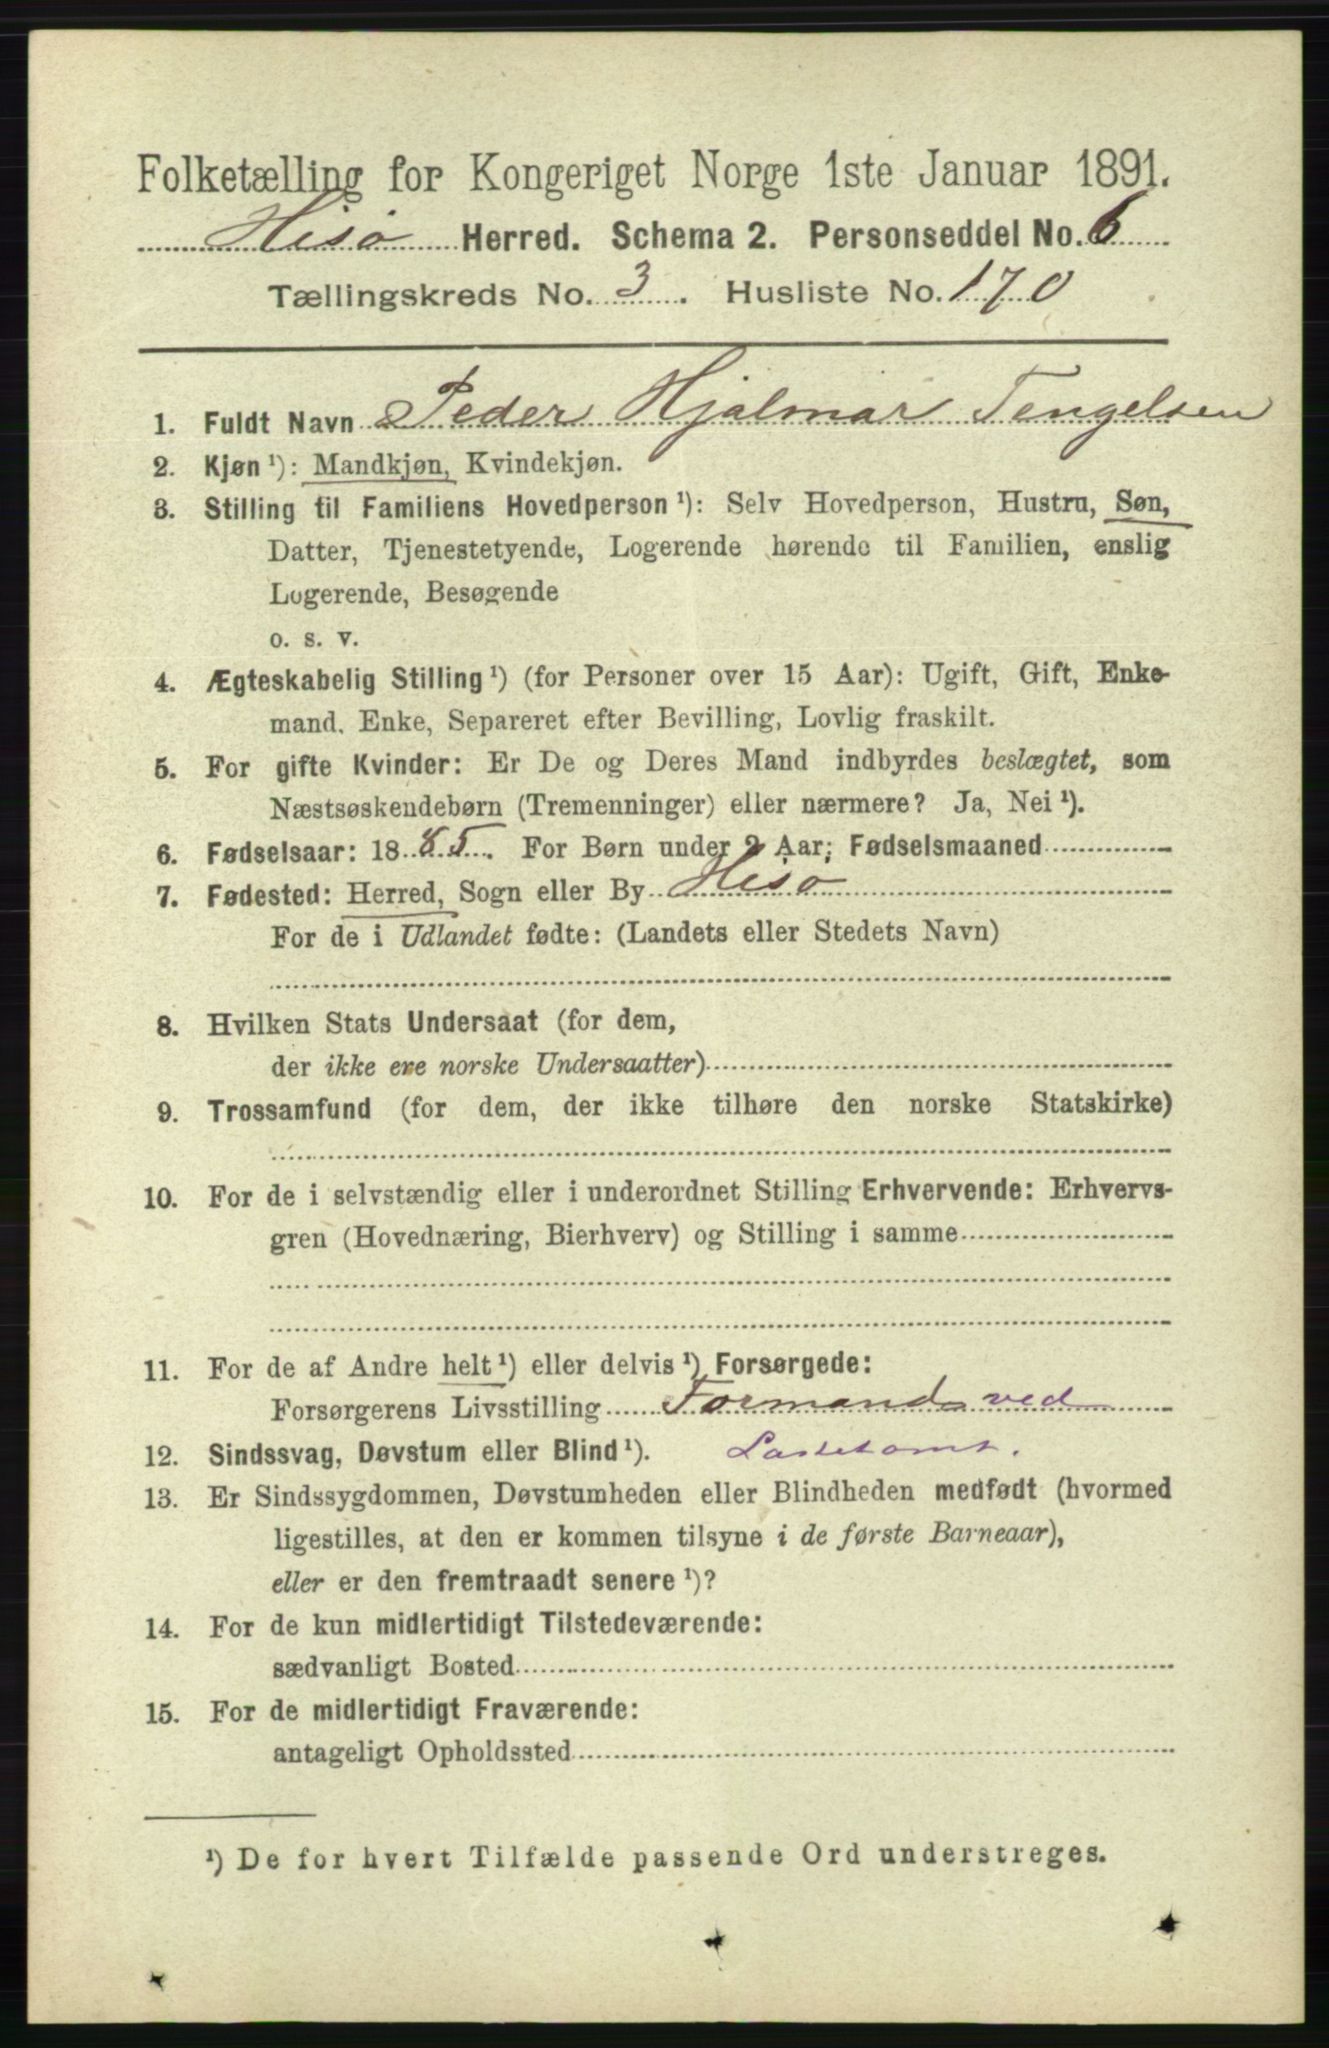 Folketælling for Kongeriget Norge 1ste Januar 1891.
Hisø Herred. Schema 2. Personseddel No. 6
Tællingskreds No. 3. Husliste No. 170
1. Fuldt Navn Peder Hjalmar Tengelsen
2. Kjøn ¹): Mandkjøn, Kvindekjøn.
3. Stilling til Familiens Hovedperson ¹): Selv Hovedperson, Hustru, Søn,
Datter, Tjenestetyende, Logerende hørende til Familien, enslig
Logerende, Besøgende
o. s. v.
4. Ægteskabelig Stilling ¹) (for Personer over 15 Aar): Ugift, Gift, Enke-
mand, Enke, Separeret efter Bevilling, Lovlig fraskilt.
5. For gifte Kvinder: Er De og Deres Mand indbyrdes beslægtet, som
Næstsøskendebørn (Tremenninger) eller nærmere? Ja, Nei ¹).
6. Fødselsaar: 1885. For Børn under 2 Aar: Fødselsmaaned
7. Fødested: Herred, Sogn eller By Hisø
For de i Udlandet fødte: (Landets eller Stedets Navn)
8. Hvilken Stats Undersaat (for dem,
der ikke ere norske Undersaatter)
9. Trossamfund (for dem, der ikke tilhøre den norske Statskirke)
10. For de i selvstændig eller i underordnet Stilling Erhvervende: Erhvervs-
gren (Hovednæring, Bierhverv) og Stilling i samme
11. For de af Andre helt ¹) eller delvis ¹) Forsørgede:
Forsørgerens Livsstilling Formand ved
12. Sindssvag, Døvstum eller Blind ¹). Lastetomt.
13. Er Sindssygdommen, Døvstumheden eller Blindheden medfødt (hvormed
ligestilles, at den er kommen tilsyne i de første Barneaar),
eller er den fremtraadt senere ¹)?
14. For de kun midlertidigt Tilstedeværende:
sædvanligt Bosted
15. For de midlertidigt Fraværende:
antageligt Opholdssted
¹) De for hvert Tilfælde passende Ord understreges.